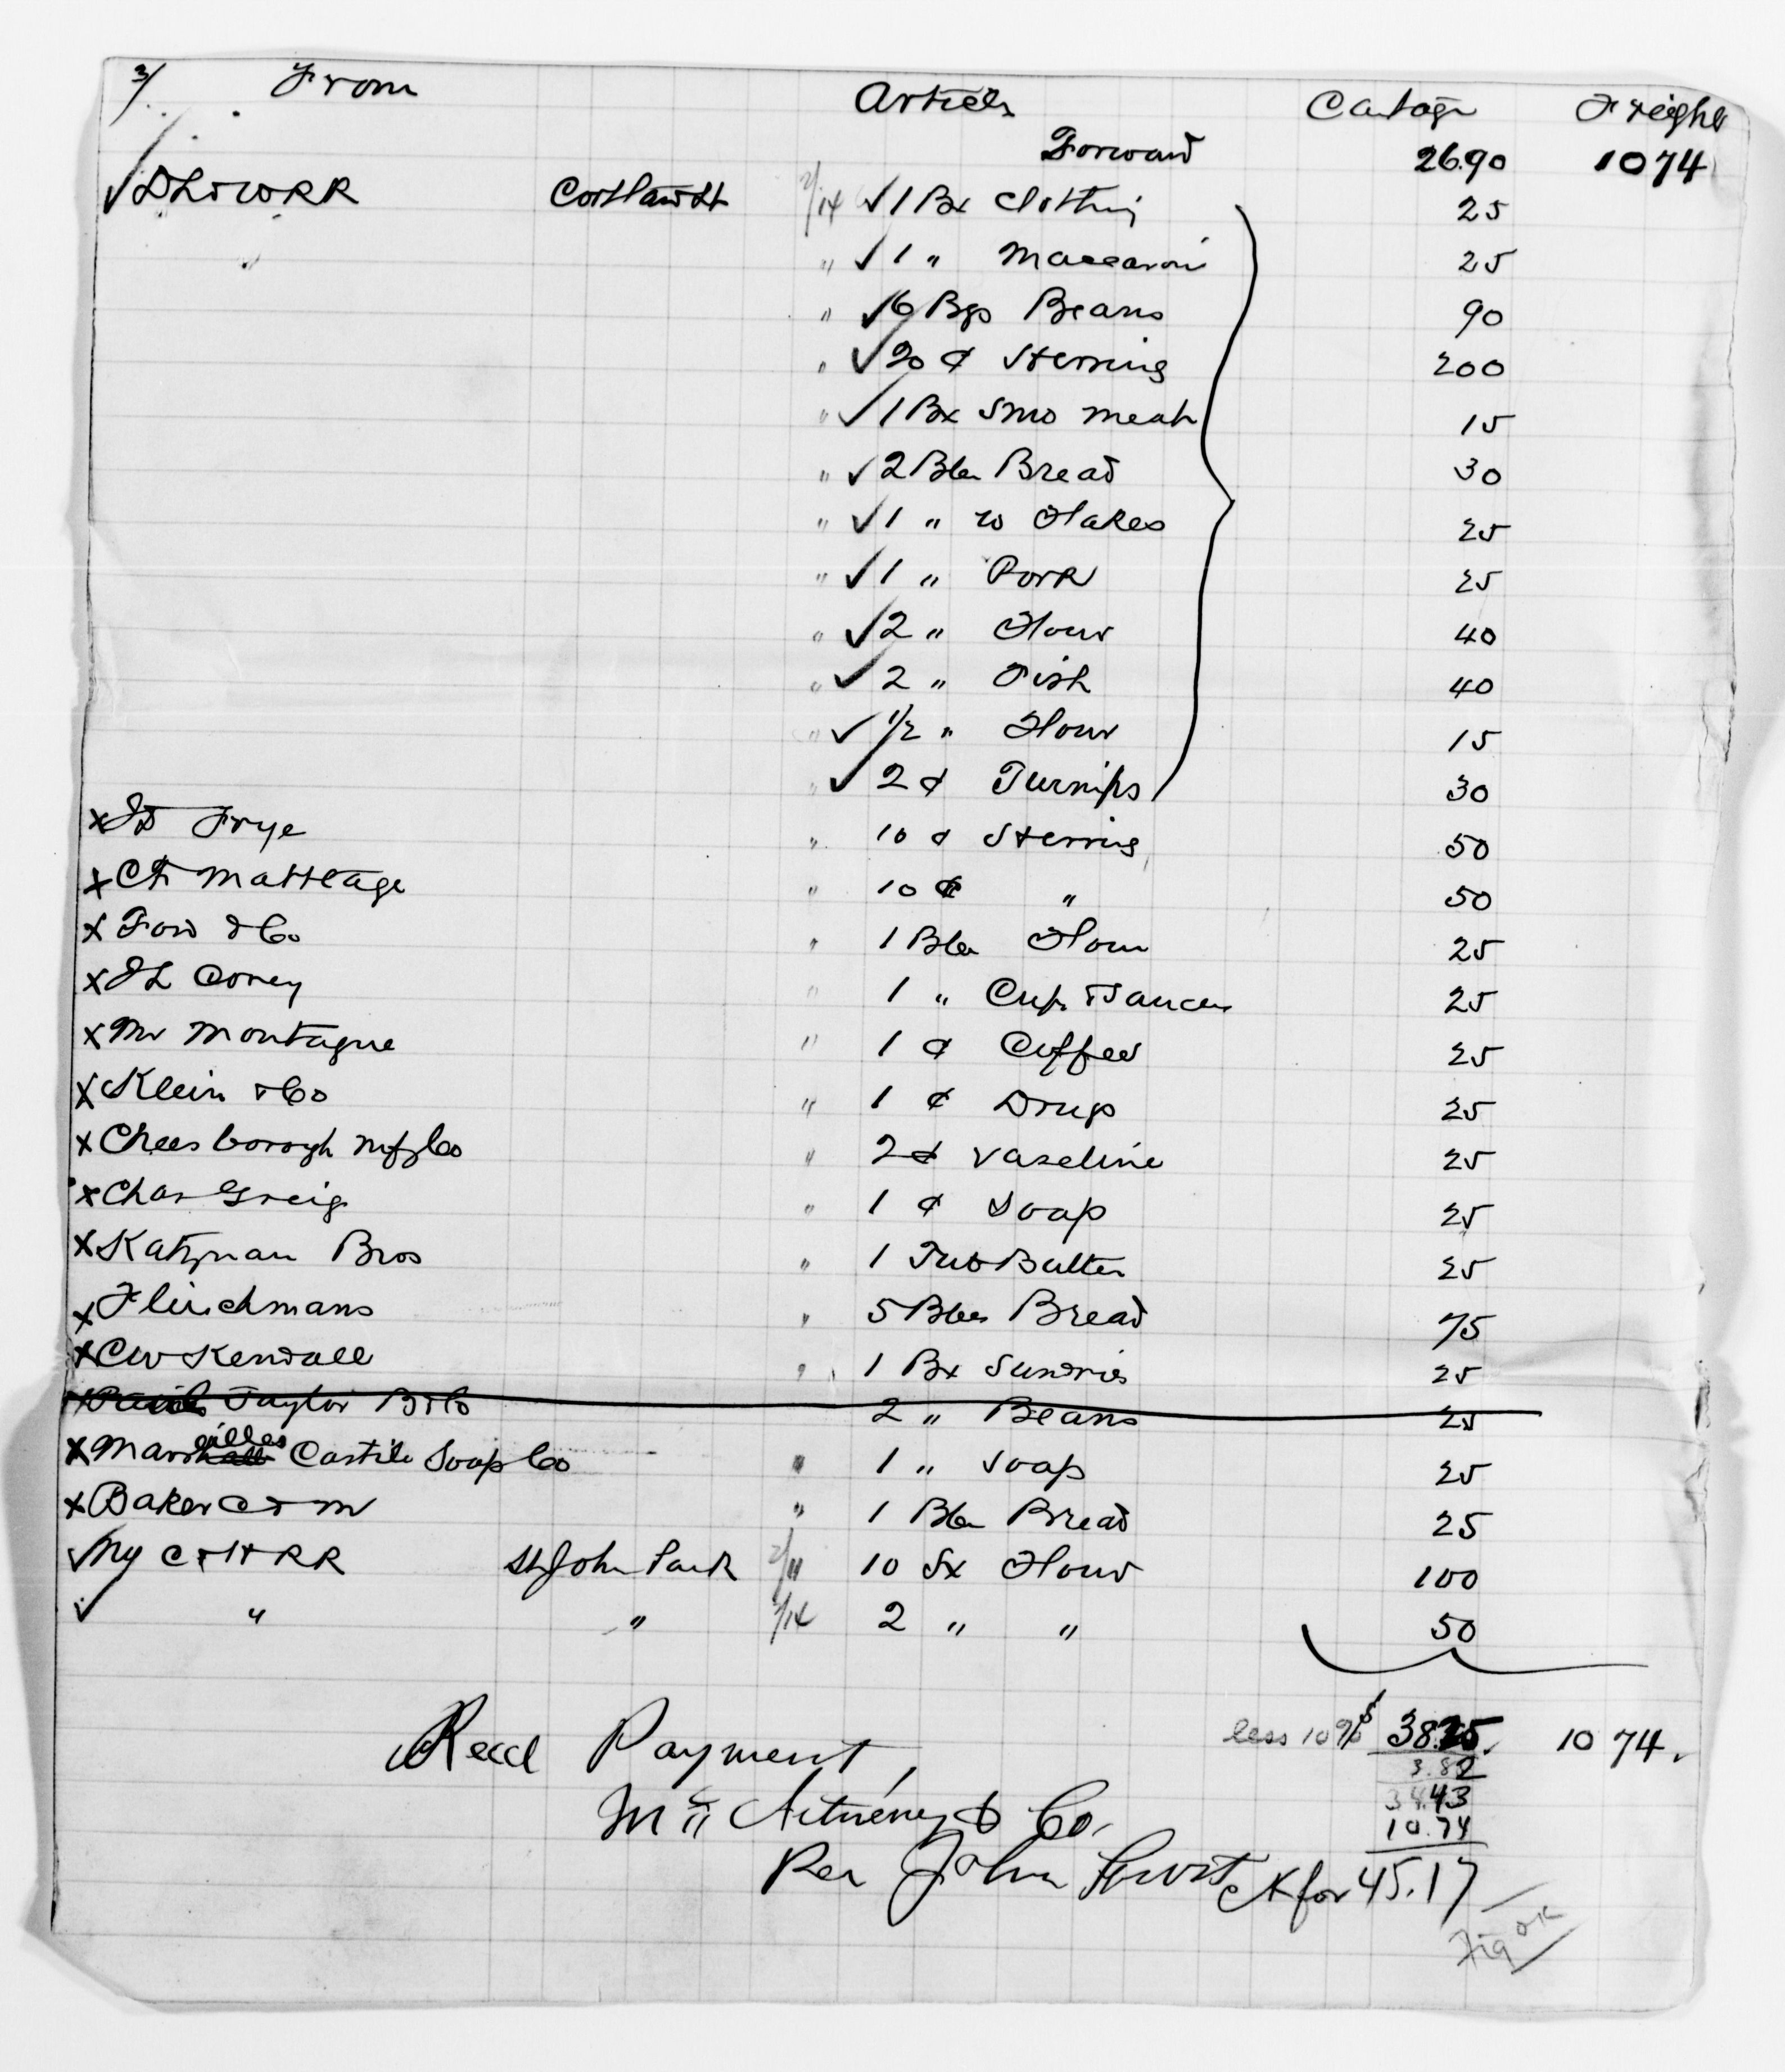 3/ From Articles Cartage Freight
Forward 26.90 1074
✓ DL&WRR Cortlandt 2/14 ✓ 1 Bx Clothing 25
" ✓ 1 " Maccaroni 25
" ✓ 6 Bgs Beans 90
" ✓ 20 ¢ Herring 200
" ✓ 1 Bx Smo Meat 15
" ✓ 2 Bbls Bread 30
" ✓ 1 " W Flakes 25
" ✓ 1 " Pork 25
" ✓ 2 " Flour 40
" ✓ 2 " Fish 40
" ✓ 1/2 " Flour 15
" ✓ 2 ¢ Turnips 30
x JD Frye " 10 ¢ Herring 50
x CF Mattlage " 10 ¢ " 50
x Ford & Co " 1 Bbl Flour 25
x JL Corey " 1 " Cups & Saucers 25
x Mr Montague " 1 ¢ Coffee 25
x Klein & Co " 1 ¢ Drugs 25
x Cheesborogh Mfg Co " 2 ¢ Vaseline 25
x Chas Greig " 1 ¢ Soap 25
x Katzman Bros " 1 Tub Butter 25
x Fleischmans " 5 Bbls Bread 75
x CW Kendall " 1 Bx Sundries 25
x Taylor B & Co 2 " Beans 25
x Marseilles Castile Soap Co " 1 " Soap 25
x Baker C & M " 1 Bbl Bread 25
✓ NY C & H RR St John Park 2/11 10 Sx Flour 100
✓ " " 2/14 2 " " 50
less 10% $ 38.25. 10 74.
Recd Payment, 3.82
34.43
& Co. 10.74
Per John ck for 45.17
Fig OK